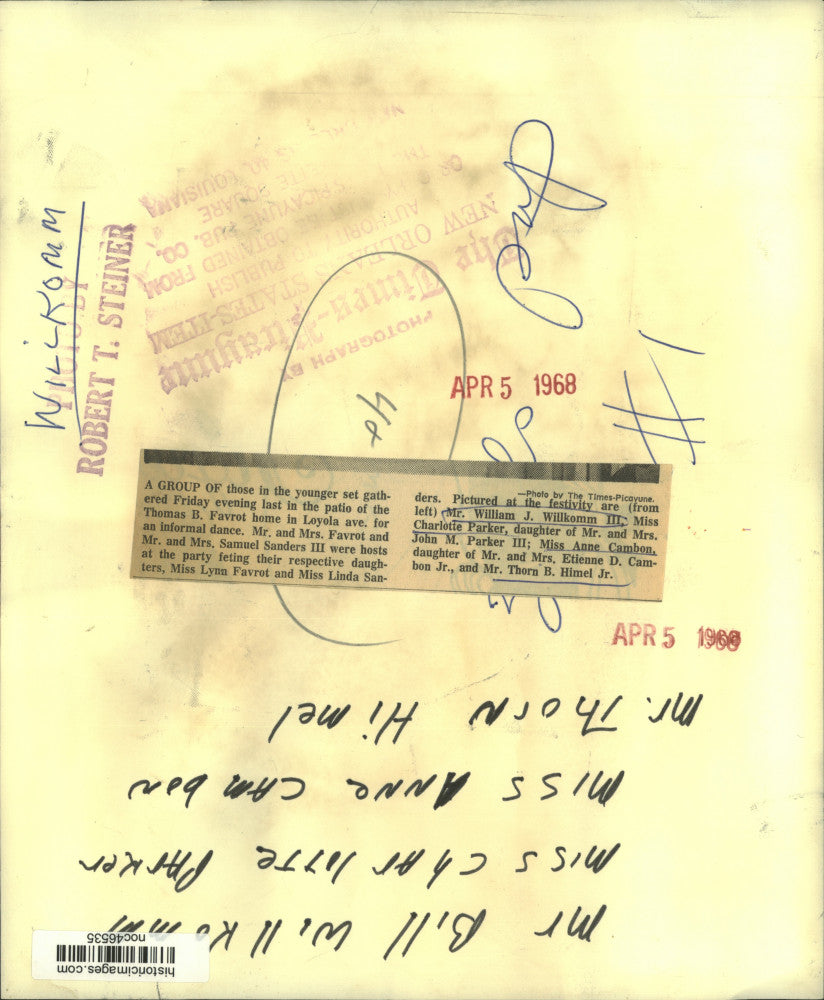 WILLKOMM
PHOTO BY
ROBERT T. STEINER
PHOTOGRAPH BY
The Times-Picayune
NEW ORLEANS STATES-ITEM
AUTHORITY TO PUBLISH
OBTAINED FROM
PUB. CO.
SQUARE
LOUISIANA
APR 5 1968
#1
A GROUP OF those in the younger set gath-
ered Friday evening last in the patio of the
Thomas B. Favrot home in Loyola ave. for
an informal dance. Mr. and Mrs. Favrot and
Mr. and Mrs. Samuel Sanders III were hosts
at the party feting their respective daugh-
ters, Miss Lynn Favrot and Miss Linda San-
—Photo by The Times-Picayune.
ders. Pictured at the festivity are (from
left) Mr. William J. Willkomm III, Miss
Charlotte Parker, daughter of Mr. and Mrs.
John M. Parker III; Miss Anne Cambon,
daughter of Mr. and Mrs. Etienne D. Cam-
bon Jr., and Mr. Thorn B. Himel Jr.
APR 5 1968
Mr Bill Willkomm
Miss Charlotte Parker
Miss Anne Cambon
Mr. Thorn Himel
historicimages.com
noc46535